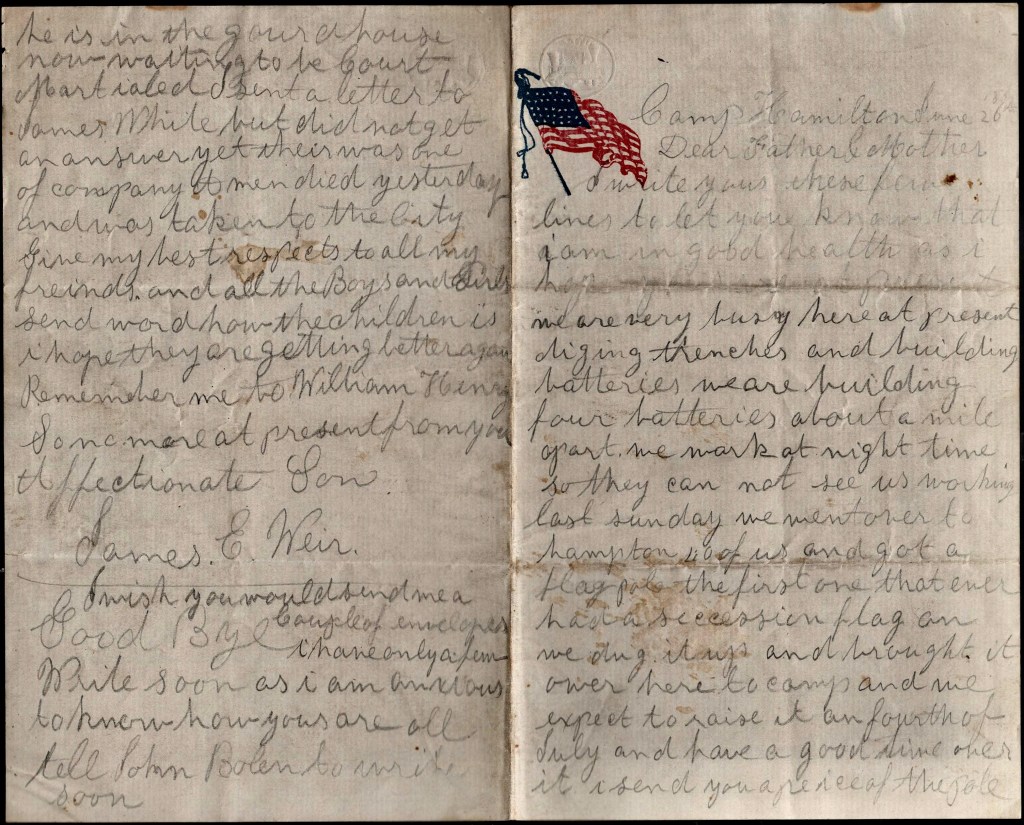 he is in the gourd house
now waiting to be Court
Martialed I sent a letter to
James White but did not get
an answer yet their was one
of company A men died yesterday
and was taken to the City
Give my best respects to all my
freinds. and all the Boys and Girls
send word how the children is
i hope they are getting better again
Remember me to William Henry
So no more at present from you
Affectionate Son
James. E. Weir.
I wish you would send me a
Couple of envelopes
Good Bye
i have only a few
Write soon as i am anxious
to know how yous are all
tell John Bolen to write
soon
Camp Hamilton June 26
Dear Father & Mother
I write yous these few
lines to let youe know that
i am in good health as i
hope
we are very busy here at present
diging trenches and building
batteries we are building
four batteries about a mile
apart. we work at night time
so they can not see us working
last sunday we went over to
hampton 10 of us and got a
flag pole the first one that ever
had a secession flag on
we dug it up and brought it
over here to camp and we
expect to raise it on fourth of
July and have a good time over
it i send you a peice of the pole